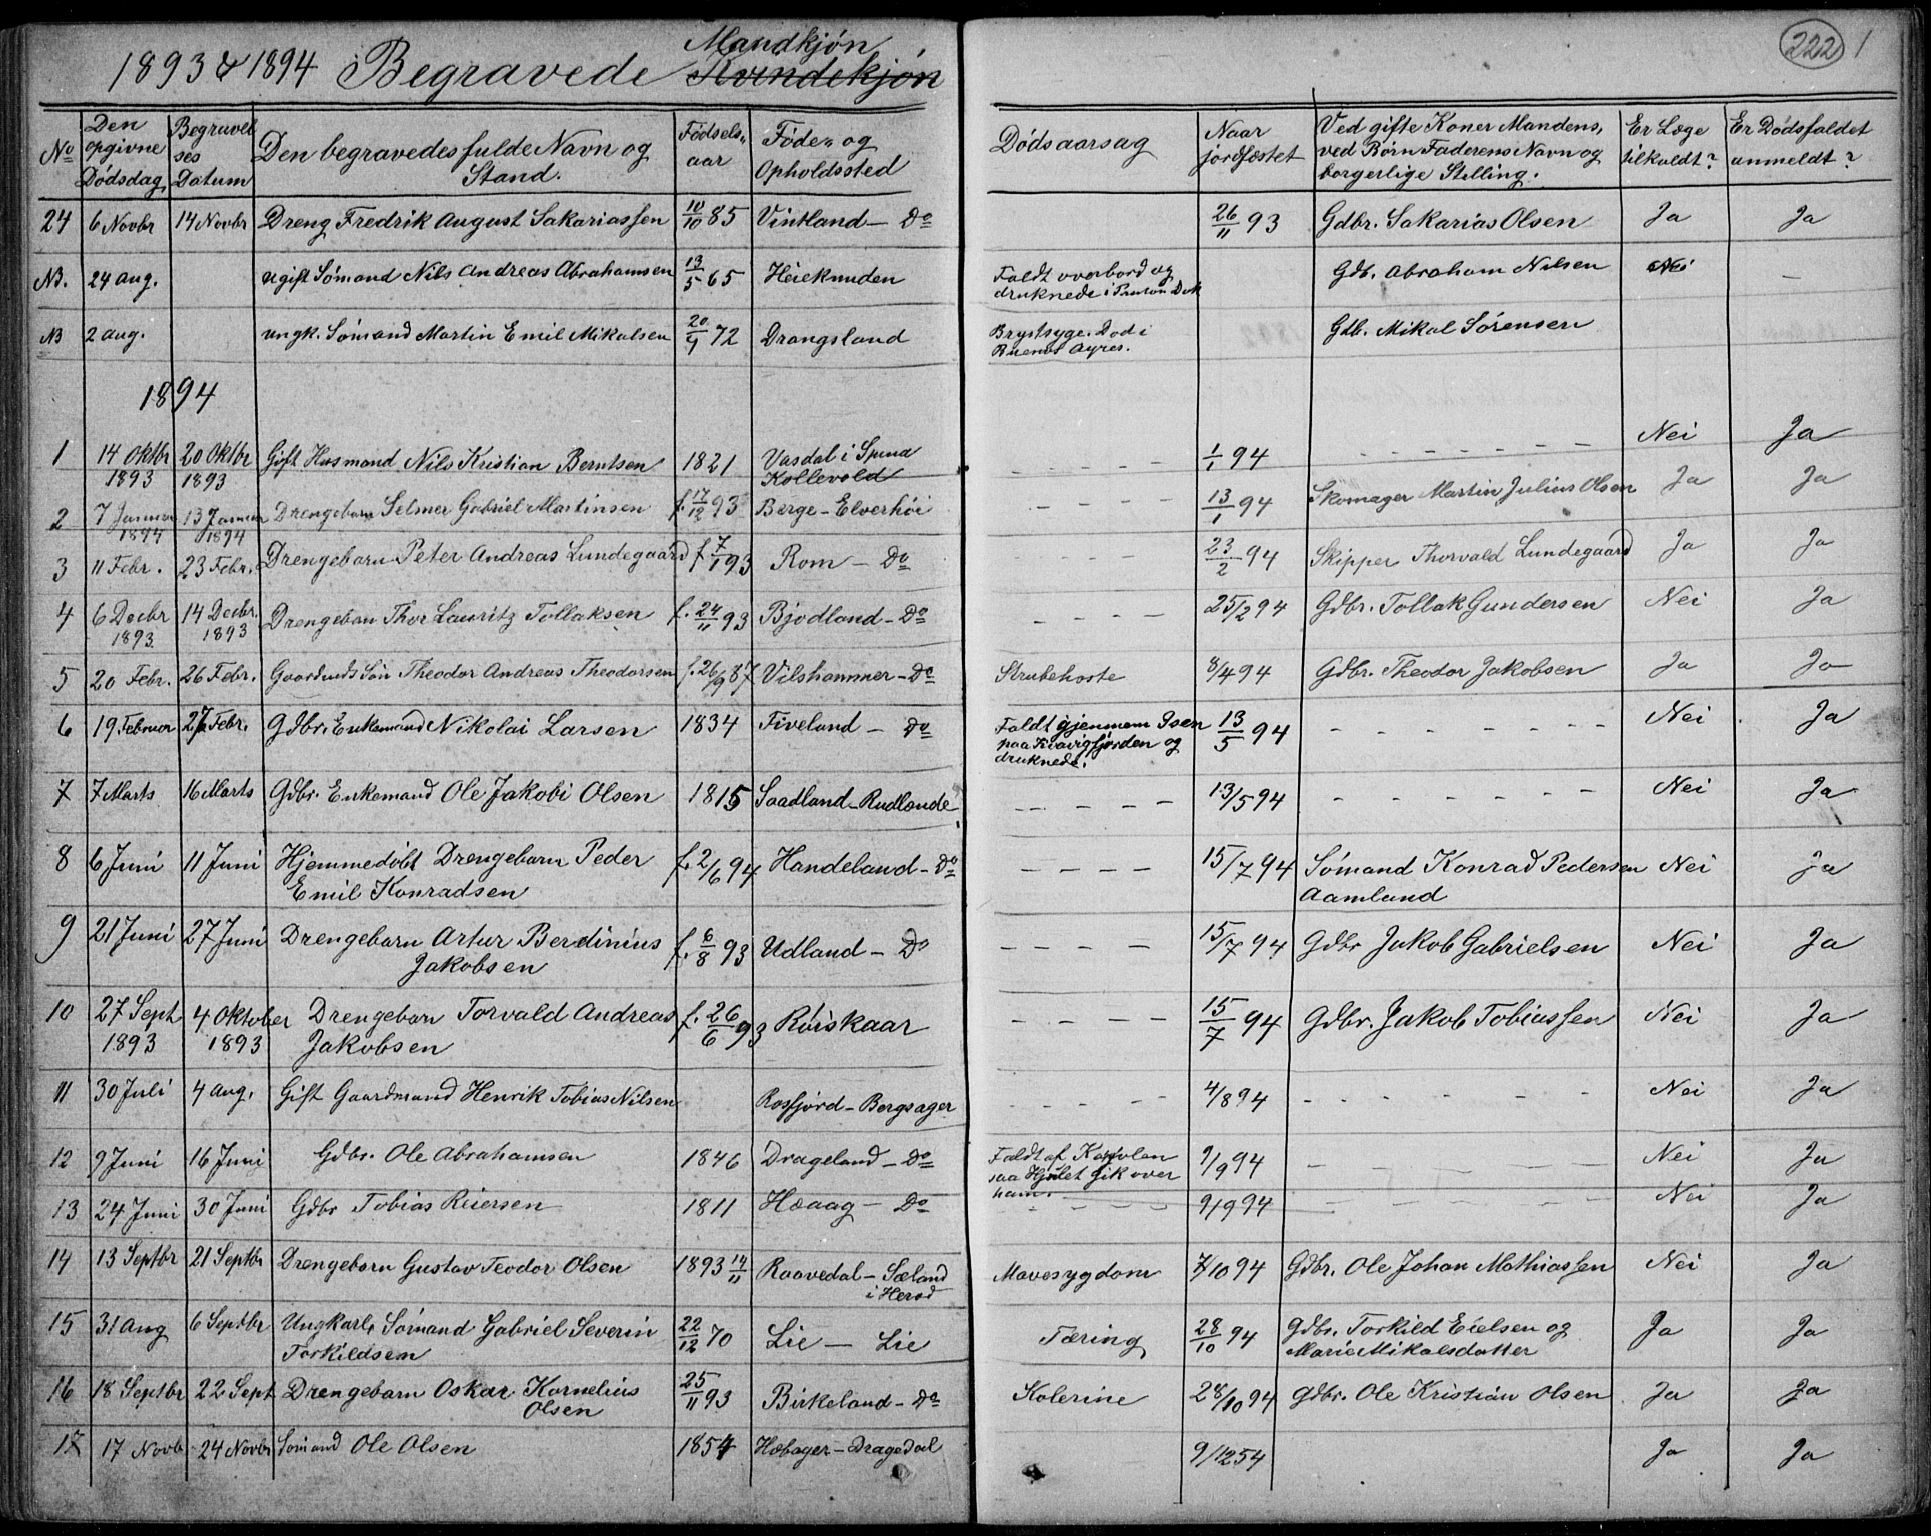 1893 & 1894 Begravede Mandkjøn Kvindekjøn
222 1
No | Den opgivne Dødsdag | Begravelses Datum | Den begravedes fulde Navn og Stand. | Fødselsaar | Føde- og Opholdssted | Dødsaarsag | Naar jordfæstet | Ved gifte Koner Mandens, ved Børn Faderens Navn og borgerlige Stilling. | Er Læge tilkaldt? | Er Dødsfaldet anmeldt?
24 | 6 Novbr | 14 Novbr | Dreng Fredrik August Sakariassen | 10/10 85 | Vintland - Do | | 26/11 93 | Gdbr. Sakarias Olsen | Ja | Ja
NB. | 24 Aug. | | Ugift Sømand Nils Andreas Abrahamsen | 13/5 65 | Heieknuden | Faldt overbord og druknede i Dok | | Gdb. Abraham Nilsen | Nei | -
NB | 2 Aug. | | Ungk. Sømand Martin Emil Mikalsen | 72 | Drangsland | Brystsyge. Død i Buenos Ayres. | | Gdb. Mikal Sørensen
1894
1 | 14 Oktbr 1893 | 20 Oktbr 1893 | Gift Husmand Nils Kristian Berntsen | 1821 | Vasdal i Spind Kollevold | - - - - | 1/1 94 | - - - - - | Nei | Ja
2 | 7 Januar 1894 | 13 Januar 1894 | Drengebarn Selmer Gabriel Martinsen | f. 17/12 93 | Berge - Elverhøi | - - - | 13/1 94 | Skomager Martin Julius Olsen | Ja | Ja
3 | 11 Febr. | 23 Febr. | Drengebarn Peter Andreas Lundegaard | f 7/1 93 | Rom - Do | - - | 23/2 94 | Skipper Thorvald Lundegaard | Ja | Ja
4 | 6 Decbr 1893 | 14 Decbr. 1893 | Drengebarn Thor Lauritz Tollaksen | f. 24/11 93 | Bjodland - Do | - - - | 25/2 94 | Gdbr. Tollak Gundersen | Nei | Ja
5 | 20 Febr. | 26 Febr. | Gaardmds Søn Theodor Andreas Theodorsen | f. 26/9 87 | Vilshammer - Do | Strubehoste | 8/4 94 | Gdbr. Theodor Jakobsen | Ja | Ja
6 | 19 Februar | 27 Febr. | Gdbr. Enkemand Nikolai Larsen | 1834 | Fiveland - Do | Faldt gjennem Isen paa Kvavigfjorden og druknede. | 13/5 94 | - - - - - - | Nei | Ja
7 | 7 Marts | 16 Marts | Gdbr. Enkemand Ole Jakobi Olsen | 1815 | Saadland - Rudlande | - - - - | 13/5 94 | - - - - - - | Nei | Ja
8 | 6 Juni | 11 Juni | Hjemmedøbt Drengebarn Peder Emil Konradsen | f. 2/6 94 | Handeland - Do | - - - - | 15/7 94 | Sømand Konrad Pedersen Aamland | Nei | Ja
9 | 21 Juni | 27 Juni | Drengebarn Artur Berdinius Jakobsen | f. 6/8 93 | Udland - Do | - - - - | 15/7 94 | Gdbr Jakob Gabrielsen | Nei | Ja
10 | 27 Sept 1893 | 4 Oktober 1893 | Drengebarn Torvald Andreas Jakobsen | f. 26/6 93 | Røiskaar | - - - - | 15/7 94 | Gdbr. Jakob Tobiassen | Nei | Ja
11 | 30 Juli | 4 Aug. | Gift Gaardmand Henrik Tobias Nilsen | | Rosfjord - Bergsager | - - - - | 4/8 94 | - - - - - - | Nei | Ja
12 | 9 Juni | 16 Juni | Gdbr. Ole Abrahamsen | 1846 | Drageland - Do | Faldt af saa Hjulet gik over ham. | 9/9 94 | - - - - - | Nei | Ja
13 | 24 Juni | 30 Juni | Gdbr Tobias Reiersen | 1811 | Hæaag - Do | - - - - | 9/9 94 | - - - - - | Nei | Ja
14 | 13 Septbr | 21 Septbr | Drengebarn Gustav Teodor Olsen | 1893 14/11 | Raavedal - Sæland i Herad | Mavesygdom | 7/10 94 | Gdbr. Ole Johan Mathiassen | Nei | Ja
15 | 31 Aug | 6 Septbr | Ungkarl, Sømand Gabriel Severin Torkildsen | 22/12 70 | Lie - Lie | Tæring | 28/10 94 | Gdbr. Torkild Eielsen og Marie Mikalsdatter | Ja | Ja
16 | 18 Septbr | 22 Sept | Drengebarn Oskar Kornelius Olsen | 25/11 93 | Birkeland - Do | Kolerine | 28/10 94 | Gdbr. Ole Kristian Olsen | Ja | Ja
17 | 17 Novb | 24 Novbr | Sømand Ole Olsen | 1854 | Hobager - Dragedal | | 9/12 54 | | Ja | Ja